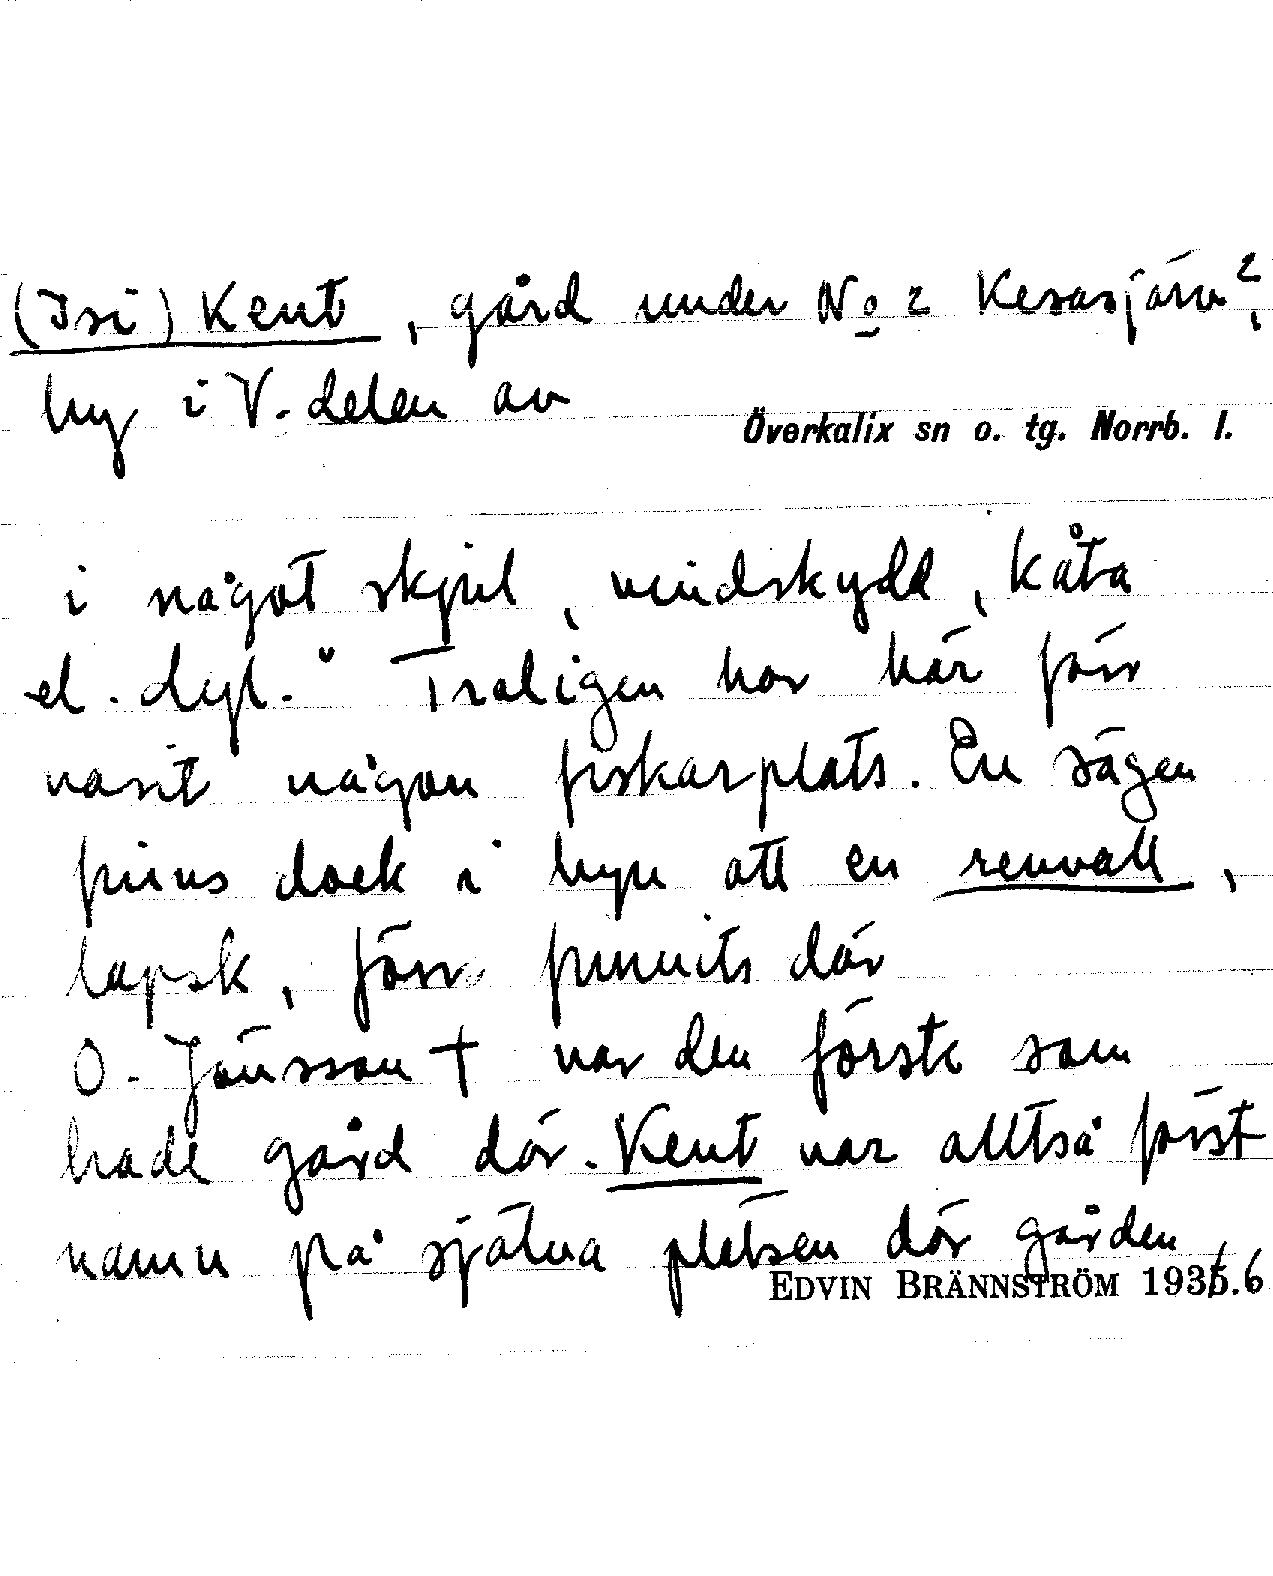 (Isi) Kent, gård under No 2 Kesasjärv²,
by i V. delen av
Överkalix sn o. tg. Norrb. l.
i något skjul, vindskydd, kåta
el. dyl." Troligen har här förr
varit någon fiskarplats. En sägen
finns dock i byn att en renvall,
lapsk, förr funnits där
O. Jönsson † var den förste som
hade gård där. Kent var alltså först
namn på själva platsen där gården
EDVIN BRÄNNSTRÖM 1936.6